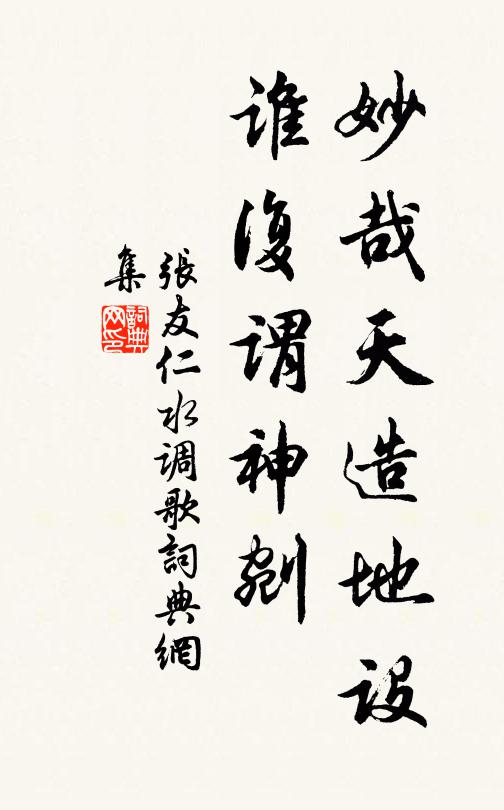 妙哉天造地設
誰復謂神剜
張友仁水调歌詞典網
集
詞典网印